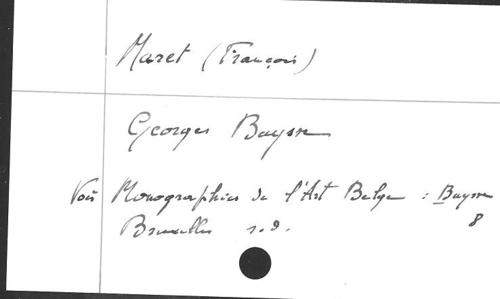 Maret (François)
Georges Buysse
Voir Monographies de l'Art Belge : Buysse
Bruxelles s.d. 8